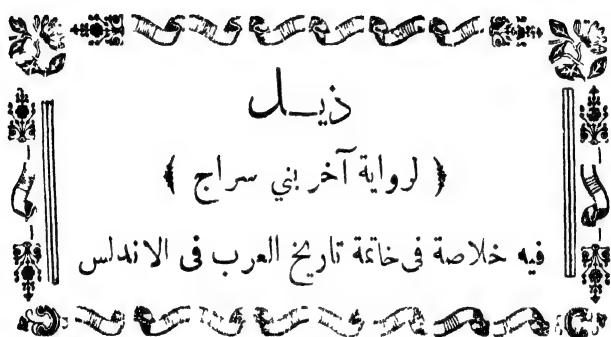 ذيـل
﴿ لرواية آخر بني سراج ﴾
فيه خلاصة فى خاتمة تاريخ العرب فى الاندلس